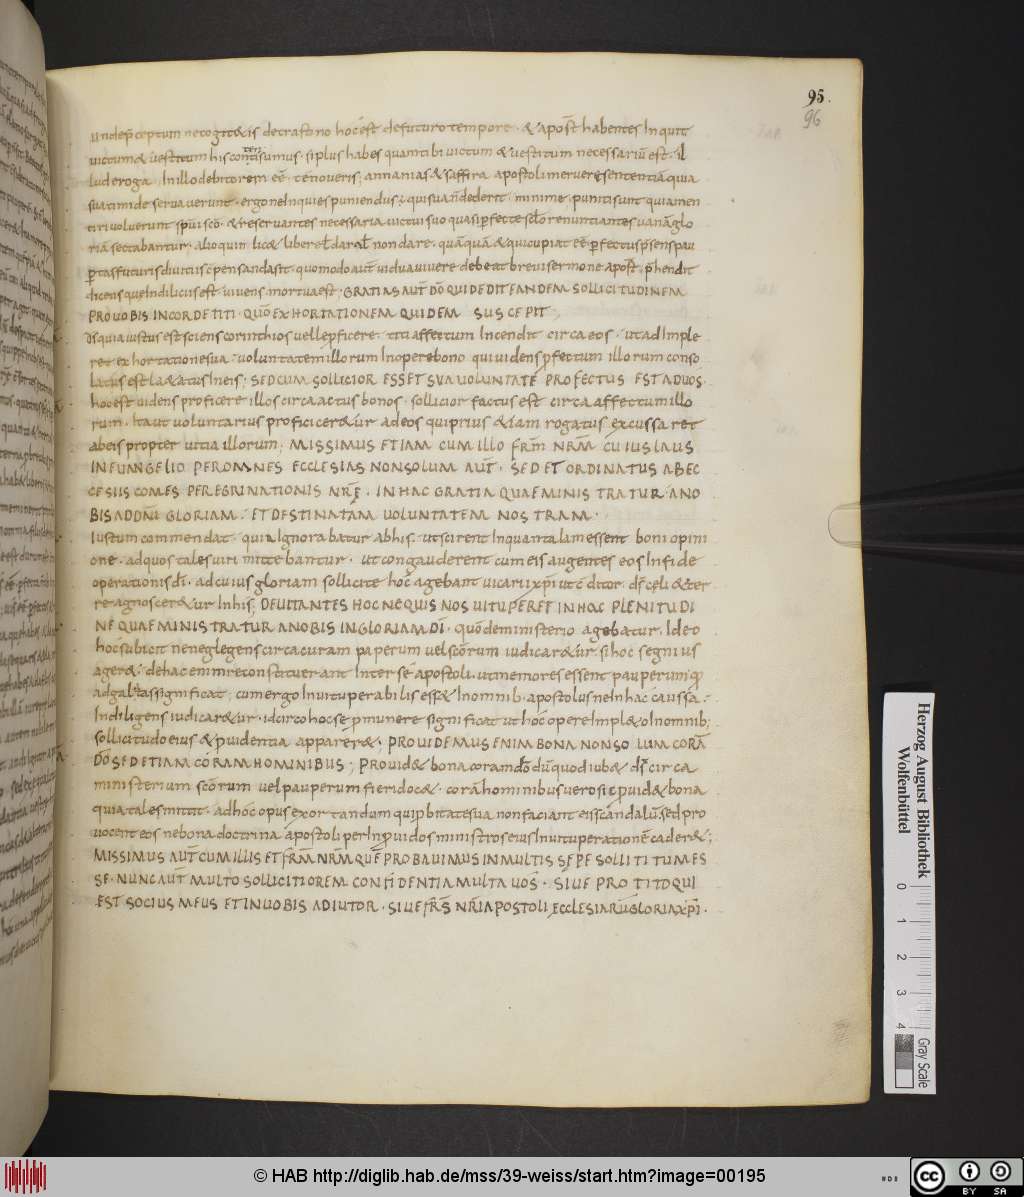 95.
96
victum & vestitum his contenti sumus · si plus habes quam tibi victum & vestitum necessariu est · il
lud eroga · In illo debitorem eē · te noveris; annanias & saffira apostoli meruere sententiā quia
sua timide servaverunt · ergone Inquies puniendus ē qui sua n dederit · minime · puniti sunt quia men
tiri voluerunt spui sco · & reservantes necessaria victui suo quasi pfecte sclo renuntiantes vanā glo
riā sectabantur · alioquin lic& libere l dare l non dare · quāquā & qui cupiat eē pfectus psens pau
ptas futuris divitiis cpensanda sit · quomodo aut vidua vivere debeat brevi sermone apost phendit
dicens que In diliciis est vivens mortua est; GRATIAS AUT DO QUI DEDIT EANDEM SOLLICITUDINEM
PRO VOBIS IN CORDE TITI · QUO EXHORTATIONEM QUIDEM SUSCEPIT
Ds quia iustus est sciens corinthios velle pficere · titi affectum Incendit circa eos · ut ad Imple
ret exhortatione sua · voluntatem illorum In opere bono qui videns pfectum illorum conso
latus est la&atus In eis; SED CUM SOLLICIOR ESSET SUA VOLUNTATE PROFECTUS EST AD VOS·
hoc est videns proficere illos circa actus bonos · sollicior factus est circa affectum illo
rum · Ita ut voluntarius proficicer&ur ad eos qui prius &iam rogatus excussaret
ab eis propter vitia illorum; MISSIMUS ETIAM CUM ILLO FRM NRM CUIUS LAUS
IN EVANGELIO PER OMNES ECCLESIAS NON SOLUM AUT · SED ET ORDINATUS AB EC
CESIIS COMES PEREGRINATIONIS NRĘ · IN HAC GRATIA QUAE MINISTRATUR · A NO
BIS AD DNI GLORIAM · ET DESTINATAM VOLUNTATEM NOSTRAM ·
Iustum commendat · quia Ignorabatur ab his · ut scirent In quanta lam essent boni opini
one · ad quos tales viri mittebantur · ut congauderent cum eis augentes eos In fide
operationis di · ad cuius gloriam sollicite hoc agebant vicarii xpi ut cditor ds celi & ter
re agnoscer&ur In his; DEVITANTES HOC NE QUIS NOS VITUPERET IN HAC PLENITUDI
NE QUAE MINISTRATUR A NOBIS IN GLORIAM DI · quo de ministerio agebatur · Ideo
hoc subicit ne neglegens circa curam pauperum vel scorum iudicar&ur · si hoc segnius
ager& · de hac enim re constituerant Inter se apostoli · ut memores essent pauperum q
ad galatas significat; cum ergo Invituperabilis ess& In omnib · apostolus ne In hac caussa
Indiligens iudicar&ur · idcirco hoc se pmunere significat ut hoc opere Impl&o In omnib;
sollicitudo eius & pvidentia apparer&; PROVIDEMUS ENIM BONA NON SOLUM CORĀ
DO SED ETIAM CORAM HOMINIBUS; Provid& bona coram do dū quod iub& ds circa
ministerium scorum vel pauperum fieri doc& · corā hominibus vero sic pvid& bona
quia tales mittit · ad hoc opus exortandum qui pbitate sua non faciant eis scandalū · sed pro
vocent eos ne bona doctrina apostoli per Inpvidos ministros eius In vituperationē cader&;
MISSIMUS AUT CUM ILLIS ET FRM NRM QUE PROBAVIMUS IN MULTIS SEPE SOLLITITUM ES
SE · NUNC AUT MULTO SOLLICITIOREM CONFIDENTIA MULTA UOS · SIVE PRO TITO QUI
EST SOCIUS MEUS ET IN VOBIS ADIUTOR · SIVE FRS NRI APOSTOLI ECCLESIARU GLORIA XPI ·
Herzog August Bibliothek
Wolfenbüttel
0 1 2 3 4
Gray Scale
© HAB http://diglib.hab.de/mss/39-weiss/start.htm?image=00195
cc BY SA